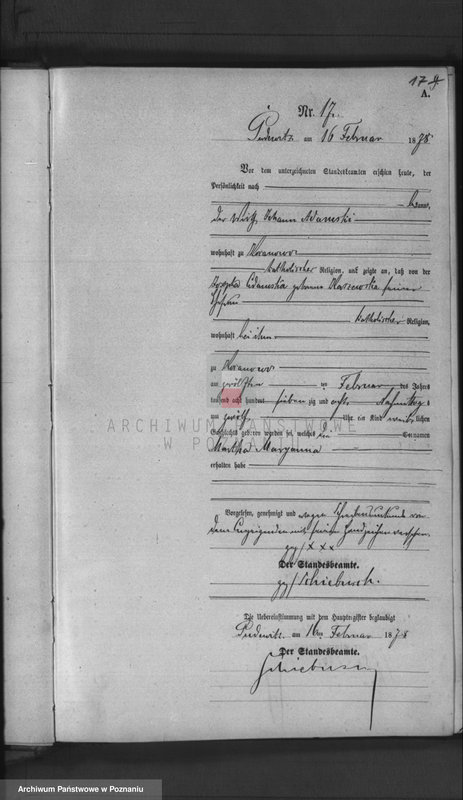 17
A.
Nr. 17.
Pudewitz am 16 Februar 1878
Vor dem unterzeichneten Standesbeamten erschien heute, der
Persönlichkeit nach
kannt,
der Wirth Johann Adamski
wohnhaft zu
katholischer Religion, und zeigte an, daß von der
Adamska geborene seiner
Ehefrau
katholischer Religion,
wohnhaft bei ihm
zu
am zwölften ten Februar des Jahres
tausend acht hundert sieben zig und acht Nachmittags
um zwölf Uhr ein Kind weiblichen
Geschlechts geboren worden sei, welches Vornamen
Martha Maryanna
erhalten habe
Vorgelesen, genehmigt und wegen Schreibensunkunde von
dem Anzeigenden mit seinem Handzeichen versehen.
gez/ x x x
Der Standesbeamte.
gez/
Die Uebereinstimmung mit dem Hauptregister beglaubigt
Pudewitz am 16ten Februar 1878
Der Standesbeamte.
ARCHIWUM PAŃSTWOWE
W POZNANIU
Archiwum Państwowe w Poznaniu